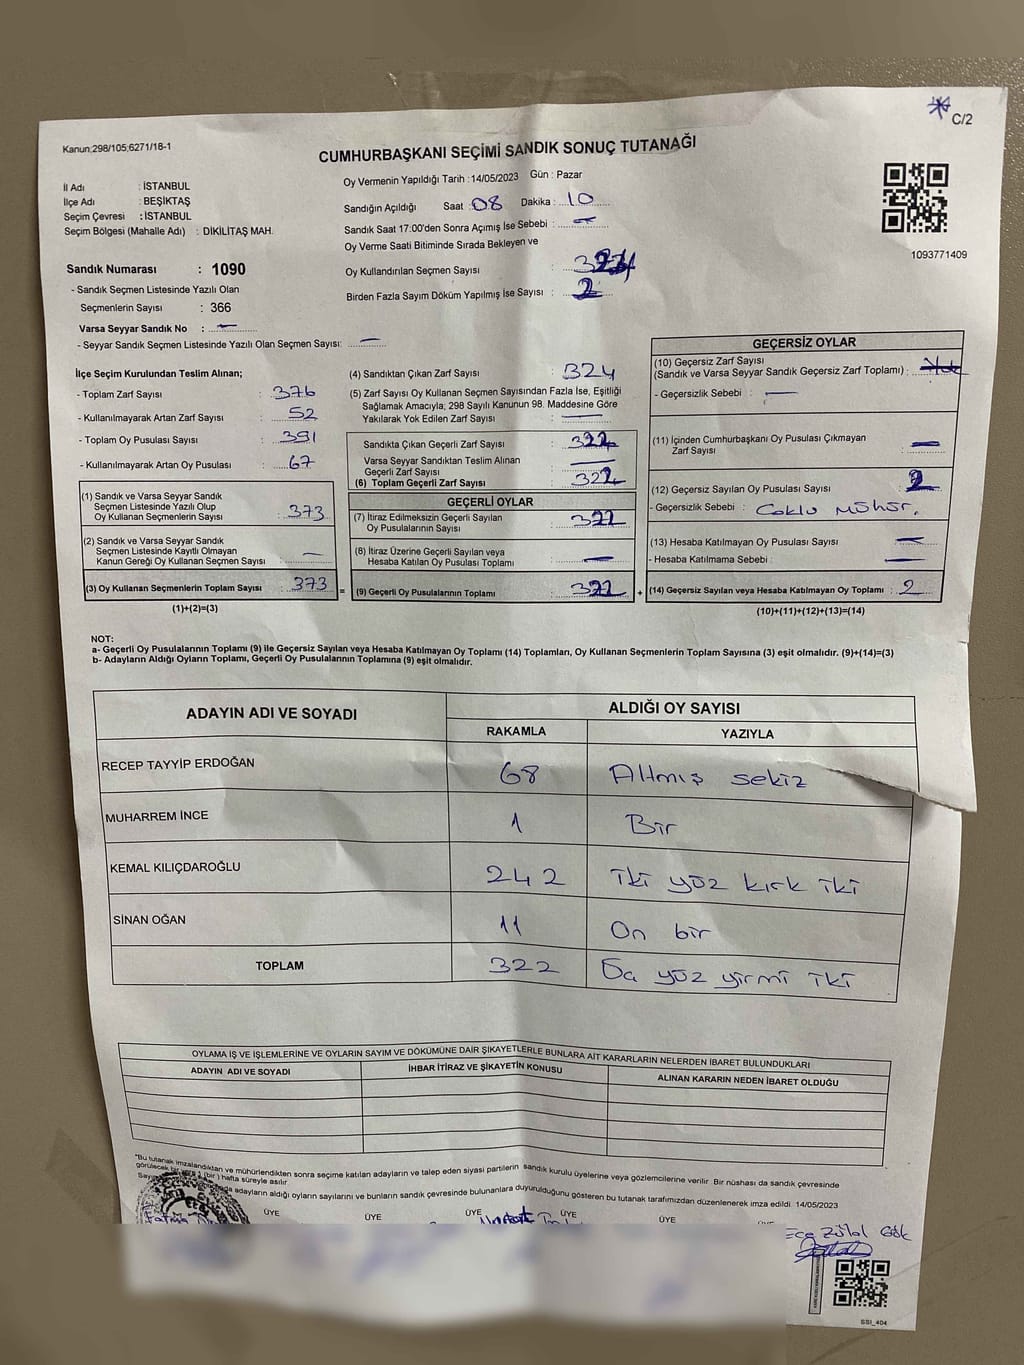 C/2
Kanun;298/105;6271/18-1
CUMHURBAŞKANI SEÇİMİ SANDIK SONUÇ TUTANAĞI
İl Adı : İSTANBUL
İlçe Adı : BEŞİKTAŞ
Seçim Çevresi : İSTANBUL
Seçim Bölgesi (Mahalle Adı) : DİKİLİTAŞ MAH.
Oy Vermenin Yapıldığı Tarih : 14/05/2023 Gün : Pazar
Sandığın Açıldığı Saat : 08 Dakika : 10
Sandık Saat 17:00'den Sonra Açımış İse Sebebi : —
Oy Verme Saati Bitiminde Sırada Bekleyen ve
Oy Kullandırılan Seçmen Sayısı :
Birden Fazla Sayım Döküm Yapılmış İse Sayısı : 2
1093771409
Sandık Numarası : 1090
- Sandık Seçmen Listesinde Yazılı Olan
Seçmenlerin Sayısı : 366
Varsa Seyyar Sandık No : —
- Seyyar Sandık Seçmen Listesinde Yazılı Olan Seçmen Sayısı: —
İlçe Seçim Kurulundan Teslim Alınan;
- Toplam Zarf Sayısı : 376
- Kullanılmayarak Artan Zarf Sayısı : 52
- Toplam Oy Pusulası Sayısı : 391
- Kullanılmayarak Artan Oy Pusulası : 67
(1) Sandık ve Varsa Seyyar Sandık
Seçmen Listesinde Yazılı Olup
Oy Kullanan Seçmenlerin Sayısı : 373
(2) Sandık ve Varsa Seyyar Sandık
Seçmen Listesinde Kayıtlı Olmayan
Kanun Gereği Oy Kullanan Seçmen Sayısı : —
(3) Oy Kullanan Seçmenlerin Toplam Sayısı : 373
(1)+(2)=(3)
(4) Sandıktan Çıkan Zarf Sayısı : 324
(5) Zarf Sayısı Oy Kullanan Seçmen Sayısından Fazla İse, Eşitliği
Sağlamak Amacıyla; 298 Sayılı Kanunun 98. Maddesine Göre
Yakılarak Yok Edilen Zarf Sayısı : —
Sandıkta Çıkan Geçerli Zarf Sayısı : 322
Varsa Seyyar Sandıktan Teslim Alınan
Geçerli Zarf Sayısı : —
(6) Toplam Geçerli Zarf Sayısı : 322
GEÇERLİ OYLAR
(7) İtiraz Edilmeksizin Geçerli Sayılan
Oy Pusulalarının Sayısı : 322
(8) İtiraz Üzerine Geçerli Sayılan veya
Hesaba Katılan Oy Pusulası Toplamı : —
= (9) Geçerli Oy Pusulalarının Toplamı : 322 +
GEÇERSİZ OYLAR
(10) Geçersiz Zarf Sayısı
(Sandık ve Varsa Seyyar Sandık Geçersiz Zarf Toplamı) :
- Geçersizlik Sebebi : —
(11) İçinden Cumhurbaşkanı Oy Pusulası Çıkmayan
Zarf Sayısı : —
(12) Geçersiz Sayılan Oy Pusulası Sayısı : 2
- Geçersizlik Sebebi : Çoklu Mühür.
(13) Hesaba Katılmayan Oy Pusulası Sayısı : —
- Hesaba Katılmama Sebebi : —
(14) Geçersiz Sayılan veya Hesaba Katılmayan Oy Toplamı : 2
(10)+(11)+(12)+(13)=(14)
NOT:
a- Geçerli Oy Pusulalarının Toplamı (9) ile Geçersiz Sayılan veya Hesaba Katılmayan Oy Toplamı (14) Toplamları, Oy Kullanan Seçmenlerin Toplam Sayısına (3) eşit olmalıdır. (9)+(14)=(3)
b- Adayların Aldığı Oyların Toplamı, Geçerli Oy Pusulalarının Toplamına (9) eşit olmalıdır.
ADAYIN ADI VE SOYADI ALDIĞI OY SAYISI
RAKAMLA YAZIYLA
RECEP TAYYİP ERDOĞAN 68 Altmış sekiz
MUHARREM İNCE 1 Bir
KEMAL KILIÇDAROĞLU 242 İki yüz kırk iki
SİNAN OĞAN 11 On bir
TOPLAM 322 Üç yüz yirmi iki
OYLAMA İŞ VE İŞLEMLERİNE VE OYLARIN SAYIM VE DÖKÜMÜNE DAİR ŞİKAYETLERLE BUNLARA AİT KARARLARIN NELERDEN İBARET BULUNDUKLARI
ADAYIN ADI VE SOYADI İHBAR İTİRAZ VE ŞİKAYETİN KONUSU ALINAN KARARIN NEDEN İBARET OLDUĞU
"Bu tutanak imzalandıktan ve mühürlendikten sonra seçime katılan adayların ve talep eden siyasi partilerin sandık kurulu üyelerine veya gözlemcilerine verilir. Bir nüshası da sandık çevresinde
görülecek bir yere 1 (bir) hafta süreyle asılır.
adayların aldığı oyların sayılarını ve bunların sandık çevresinde bulunanlara duyurulduğunu gösteren bu tutanak tarafımızdan düzenlenerek imza edildi. 14/05/2023
ÜYE ÜYE ÜYE ÜYE ÜYE
Ece Zülal Gök
SSI_404